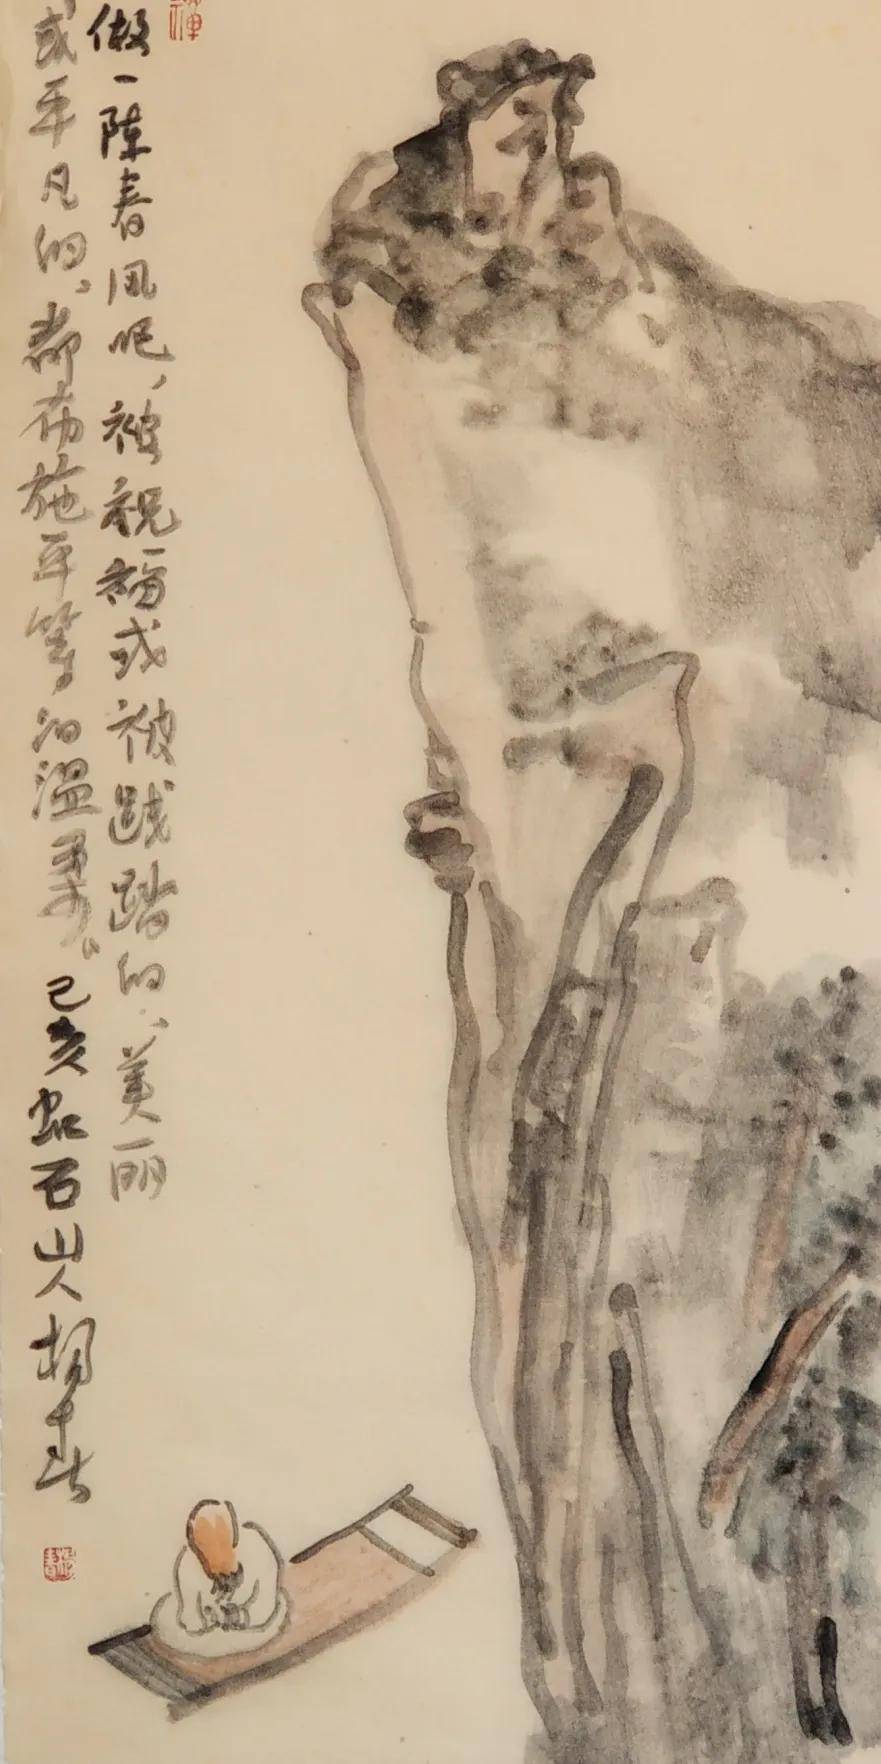 做一陈春风吧，被祝福或被践踏的、美丽
或平凡的、都布施平等的温柔。己亥虹石山人杨春